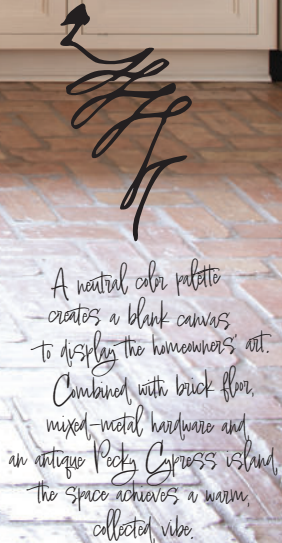 A neutral color palette
creates a blank canvas
to display the homeowners' art.
Combined with brick floor,
mixed-metal hardware and
an antique Pecky Cypress island,
the space achieves a warm,
collected vibe.